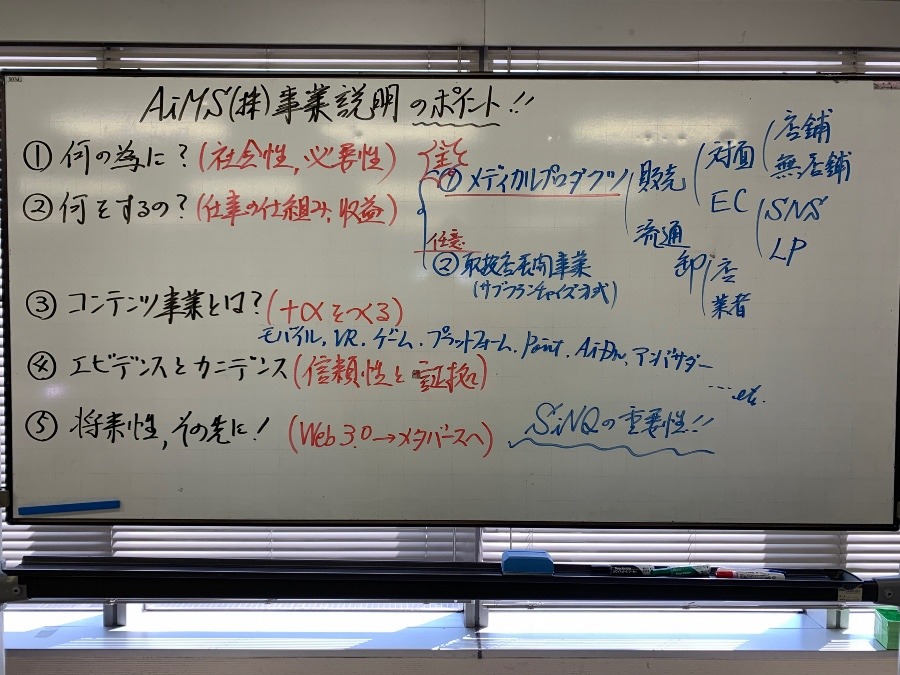 AiMS(株)事業説明のポイント!!
① 何の為に? (社会性, 必要性)
② 何をするの? (仕事の仕組み, 収益)
① メディカルプロダクツ
販売
対面
店舗
無店舗
EC
SNS
LP
流通
卸
店
業者
任意
② 取扱店展開事業
(サブフランチャイズ方式)
③ コンテンツ事業とは? (+αをつくる)
モバイル, VR, ゲーム, プラットフォーム, Point, アンバサダー
...etc.
④ エビデンスとカニデンス (信頼性と証拠)
⑤ 将来性, その先に! (Web 3.0→メタバースへ)
SiNQの重要性!!